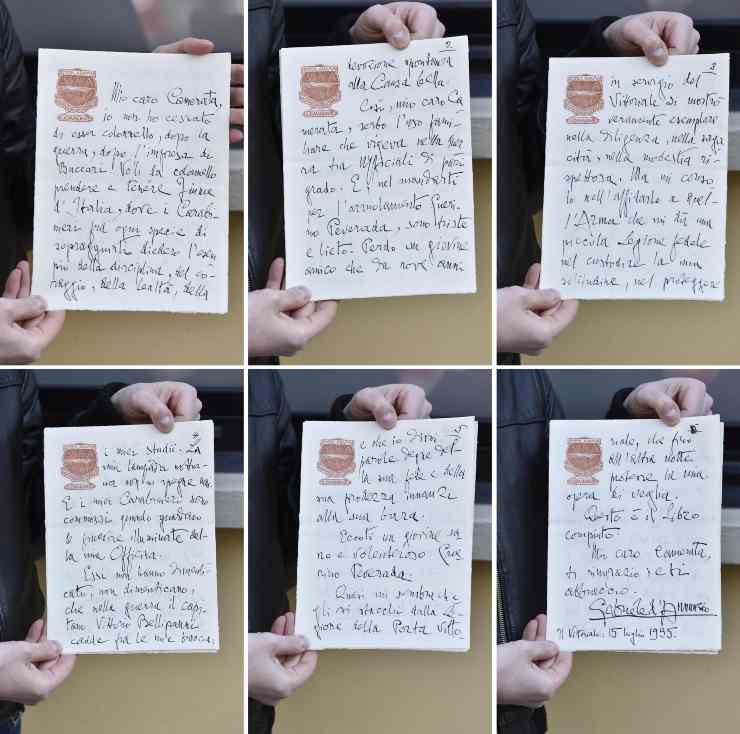 Mio caro Camerata,
io non ho cessato
di esser colonnello, dopo la
guerra, dopo l'impresa di
Buccari. Volli da colonnello
prendere e tenere Fiume
d'Italia, dove i Carabi-
nieri fra ogni specie di
sopraggiunti diedero l'esem-
pio della disciplina, del co-
raggio, della lealtà, della
2
devozione spontanea
alla Causa bella.
Così, mio caro Ca-
merata, serbo l'uso fami-
liare che vigeva nella guer-
ra tra Ufficiali di pari
grado. E nel mandarti
per l'arruolamento Gueri-
no Peverada, sono triste
e lieto. Perdo un giovine
amico che da nove anni
3
in servigio del
Vittoriale si mostrò
veramente esemplare
nella diligenza, nella saga-
cità, nella modestia ri-
spettosa. Ma mi consolo
nell'affidarlo a quel-
l'Arma che mi dà una
piccola Legione fedele
nel custodire la mia
solitudine, nel proteggere
4
i miei studii. La
mia lampada nottur-
na non si spegne mai.
E i miei Carabinieri sono
commossi quando guardano
le finestre illuminate del-
la mia Officina.
Essi non hanno dimenti-
cato, non dimenticano,
che nella guerra il capi-
tano Vittorio Bellipanni
cadde fra le mie braccia,
5
e che io dissi
parole degne del-
la sua fede e della
sua prodezza innanzi
alla sua bara.
Eccoti un giovine sa-
no e volenteroso Gue-
rino Peverada.
Quasi mi sembra che
egli si stacchi dalla Le-
gione della Porta Vitto-
6
riale, che fino
all'altra notte
potesse la mia
opera di veglia.
Questo è il Libro
compiuto.
Mio caro Camerata,
ti ringrazio; e ti
abbraccio.
Gabriele d'Annunzio
Il Vittoriale: 15 luglio 1935.